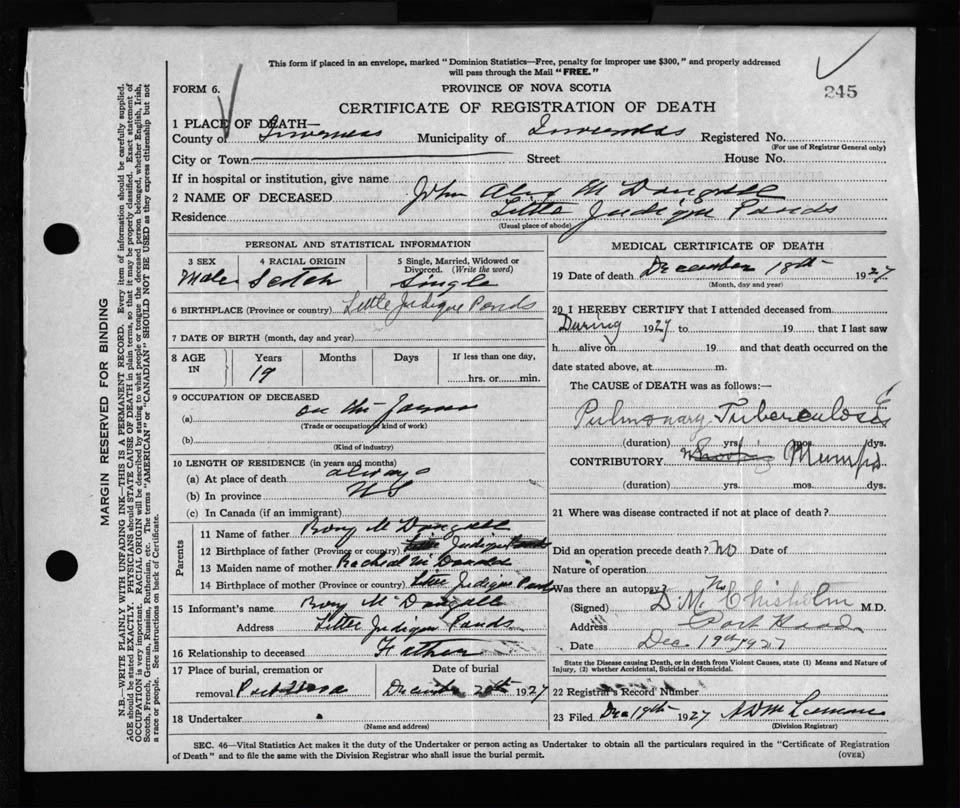 This form if placed in an envelope, marked "Dominion Statistics—Free, penalty for improper use $300," and properly addressed
will pass through the Mail "FREE."
FORM 6.
PROVINCE OF NOVA SCOTIA
245
CERTIFICATE OF REGISTRATION OF DEATH
1 PLACE OF DEATH—
County of Inverness Municipality of Inverness Registered No.
(For use of Registrar General only)
City or Town Street House No.
If in hospital or institution, give name
2 NAME OF DECEASED John Alex McDougall
Residence Little Judique Ponds
(Usual place of abode)
PERSONAL AND STATISTICAL INFORMATION
3 SEX 4 RACIAL ORIGIN 5 Single, Married, Widowed or Divorced. (Write the word)
Male Scotch Single
6 BIRTHPLACE (Province or country) Little Judique Ponds
7 DATE OF BIRTH (month, day and year)
8 AGE IN Years Months Days If less than one day,
19 hrs. or min.
9 OCCUPATION OF DECEASED
(a) on the farm
(Trade or occupation or kind of work)
(b)
(Kind of industry)
10 LENGTH OF RESIDENCE (in years and months)
(a) At place of death always
(b) In province NS
(c) In Canada (if an immigrant)
Parents
11 Name of father Rory McDougall
12 Birthplace of father (Province or country) Judique Ponds
13 Maiden name of mother Rachel McDonald
14 Birthplace of mother (Province or country) Little Judique Ponds
15 Informant's name Rory McDougall
Address Little Judique Ponds
16 Relationship to deceased Father
17 Place of burial, cremation or Date of burial
removal Port Hood December 20th 1927
18 Undertaker
(Name and address)
MEDICAL CERTIFICATE OF DEATH
19 Date of death December 18th 1927
(Month, day and year)
20 I HEREBY CERTIFY that I attended deceased from
During 1927 to 19 that I last saw
h alive on 19 and that death occurred on the
date stated above, at m.
The CAUSE of DEATH was as follows:—
Pulmonary Tuberculosis
(duration) yrs. mos. dys.
CONTRIBUTORY Mumps
(duration) yrs. mos. dys.
21 Where was disease contracted if not at place of death?
Did an operation precede death? No Date of
Nature of operation
Was there an autopsy? No
(Signed) D. M. Chisholm M.D.
Address Port Hood
Date Dec 19th 1927
State the Disease causing Death, or in death from Violent Causes, state (1) Means and Nature of
Injury, (2) whether Accidental, Suicidal or Homicidal.
22 Registrar's Record Number
23 Filed Dec 19th 1927
(Division Registrar)
SEC. 46—Vital Statistics Act makes it the duty of the Undertaker or person acting as Undertaker to obtain all the particulars required in the "Certificate of Registration
of Death" and to file the same with the Division Registrar who shall issue the burial permit.
(OVER)
MARGIN RESERVED FOR BINDING
N.B.—WRITE PLAINLY WITH UNFADING INK—THIS IS A PERMANENT RECORD. Every item of information should be carefully supplied.
AGE should be stated EXACTLY. PHYSICIANS should STATE CAUSE OF DEATH in plain terms, so that it may be properly classified. Exact statement of
OCCUPATION is very important. RACIAL ORIGIN will be described by stating to what people or tongue the deceased person belonged, whether English, Irish,
Scotch, French, German, Russian, Ruthenian, etc. The terms "AMERICAN" or "CANADIAN" SHOULD NOT BE USED as they express citizenship but not
a race or people. See instructions on back of Certificate.